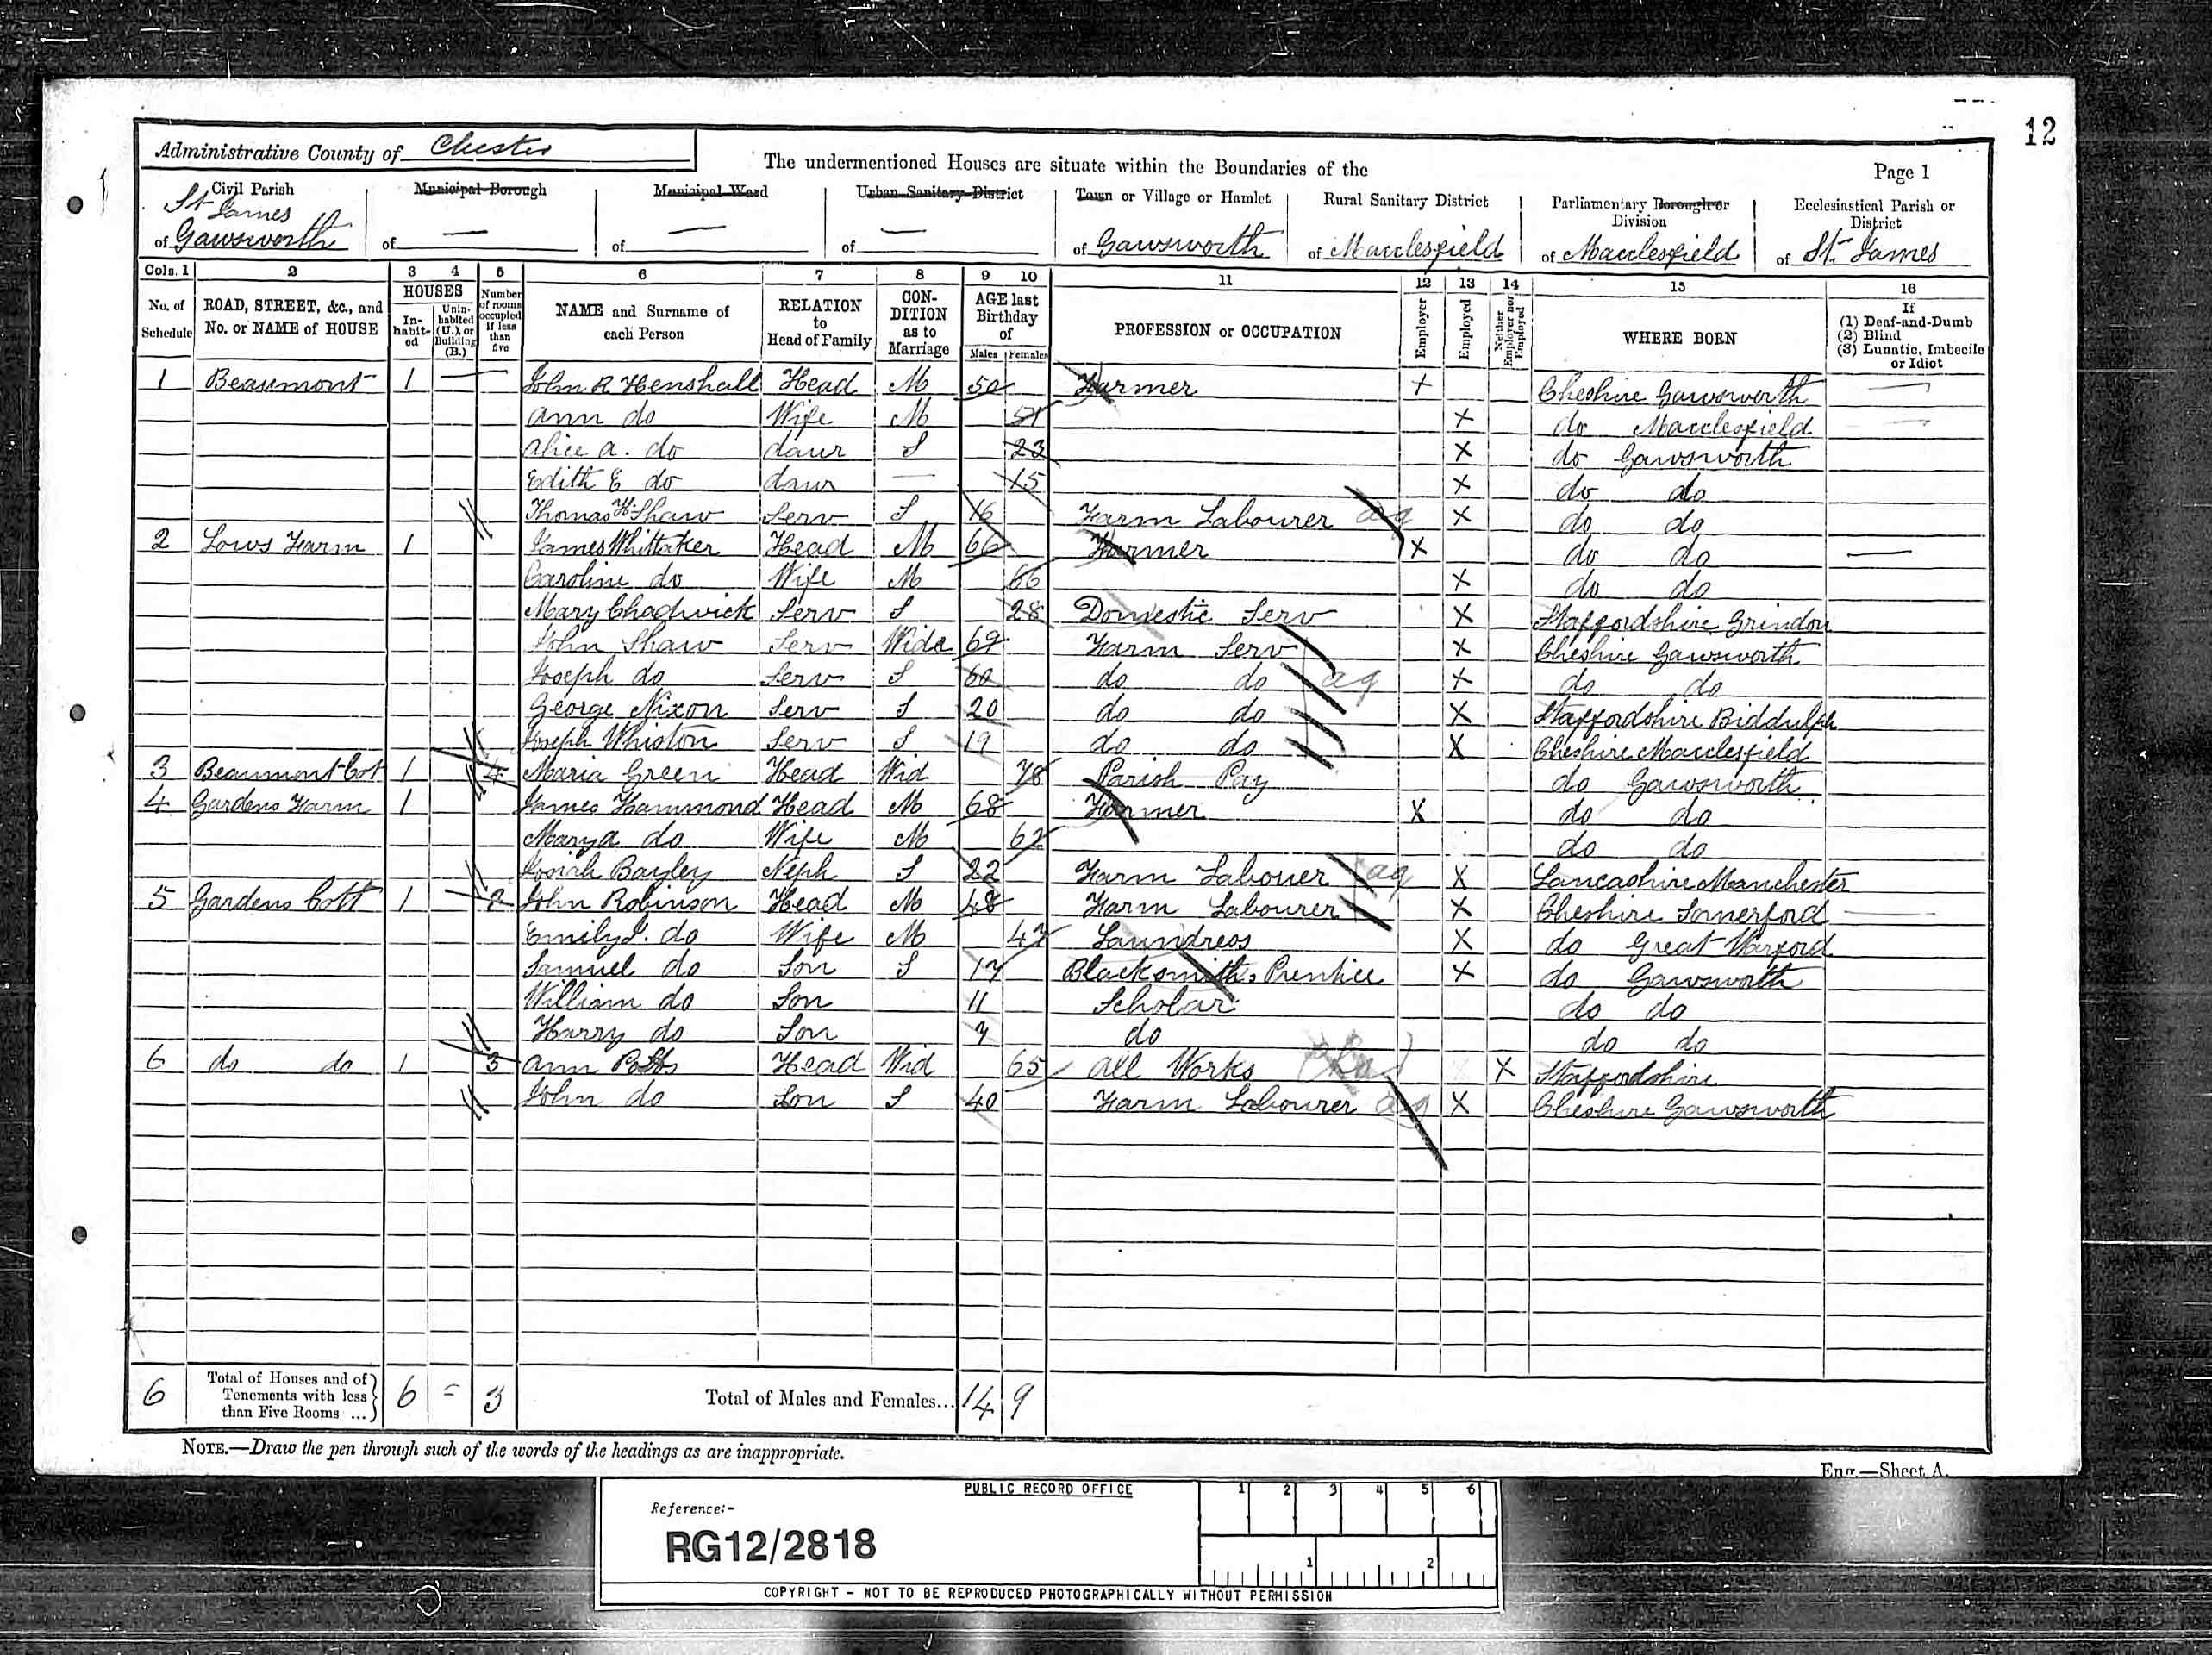 12
Administrative County of Chester
The undermentioned Houses are situate within the Boundaries of the
Page 1
Civil Parish
St James
of Gawsworth
Municipal Borough
of —
Municipal Ward
of —
Urban Sanitary District
of —
Town or Village or Hamlet
of Gawsworth
Rural Sanitary District
of Macclesfield
Parliamentary Borough or
Division
of Macclesfield
Ecclesiastical Parish or
District
of St. James
Cols. 1 2 3 4 5 6 7 8 9 10 11 12 13 14 15 16
No. of Schedule
ROAD, STREET, &c., and No. or NAME of HOUSE
HOUSES
In-habit-ed
Unin-habited (U.), or Building (B.)
Number of rooms occupied if less than five
NAME and Surname of each Person
RELATION to Head of Family
CON-DITION as to Marriage
AGE last Birthday of
Males Females
PROFESSION or OCCUPATION
Employer
Employed
Neither Employer nor Employed
WHERE BORN
If
(1) Deaf-and-Dumb
(2) Blind
(3) Lunatic, Imbecile or Idiot
1 Beaumont 1 — John R Henshall Head M 50 Farmer + Cheshire Gawsworth —
Ann do Wife M 51 X do Macclesfield —
Alice A. do daur S 23 X do Gawsworth
Edith E do daur — 15 X do do
Thomas H Shaw Serv S 16 Farm Labourer ag X do do
2 Lows Farm 1 James Whittaker Head M 66 Farmer X do do —
Caroline do Wife M 66 X do do
Mary Chadwick Serv S 28 Domestic Serv X Staffordshire Grindon
John Shaw Serv Wido 69 Farm Serv X Cheshire Gawsworth
Joseph do Serv S 60 do do ag X do do
George Nixon Serv S 20 do do X Staffordshire Biddulph
Joseph Whiston Serv S 19 do do X Cheshire Macclesfield
3 Beaumont Cot 1 4 Maria Green Head Wid 78 Parish Pay do Gawsworth
4 Gardens Farm 1 James Hammond Head M 68 Farmer X do do
Mary A do Wife M 62 do do
Josiah Bayley Neph S 22 Farm Labouer ag X Lancashire Manchester
5 Gardens Cott 1 2 John Robinson Head M 48 Farm Labourer X Cheshire Somerford —
Emily do Wife M 47 Laundress X do Great Warford
Samuel do Son S 17 Blacksmiths Prentice X do Gawsworth
William do Son 11 Scholar do do
Harry do Son 7 do do do
6 do do 1 3 Ann Potts Head Wid 65 All Works X Staffordshire
John do Son S 40 Farm Labourer ag X Cheshire Gawsworth
6 Total of Houses and of Tenements with less than Five Rooms ... 6 = 3 Total of Males and Females... 14 9
NOTE.—Draw the pen through such of the words of the headings as are inappropriate.
Eng.—Sheet A.
PUBLIC RECORD OFFICE
1 2 3 4 5 6
Reference:-
RG12/2818
1 2
COPYRIGHT - NOT TO BE REPRODUCED PHOTOGRAPHICALLY WITHOUT PERMISSION